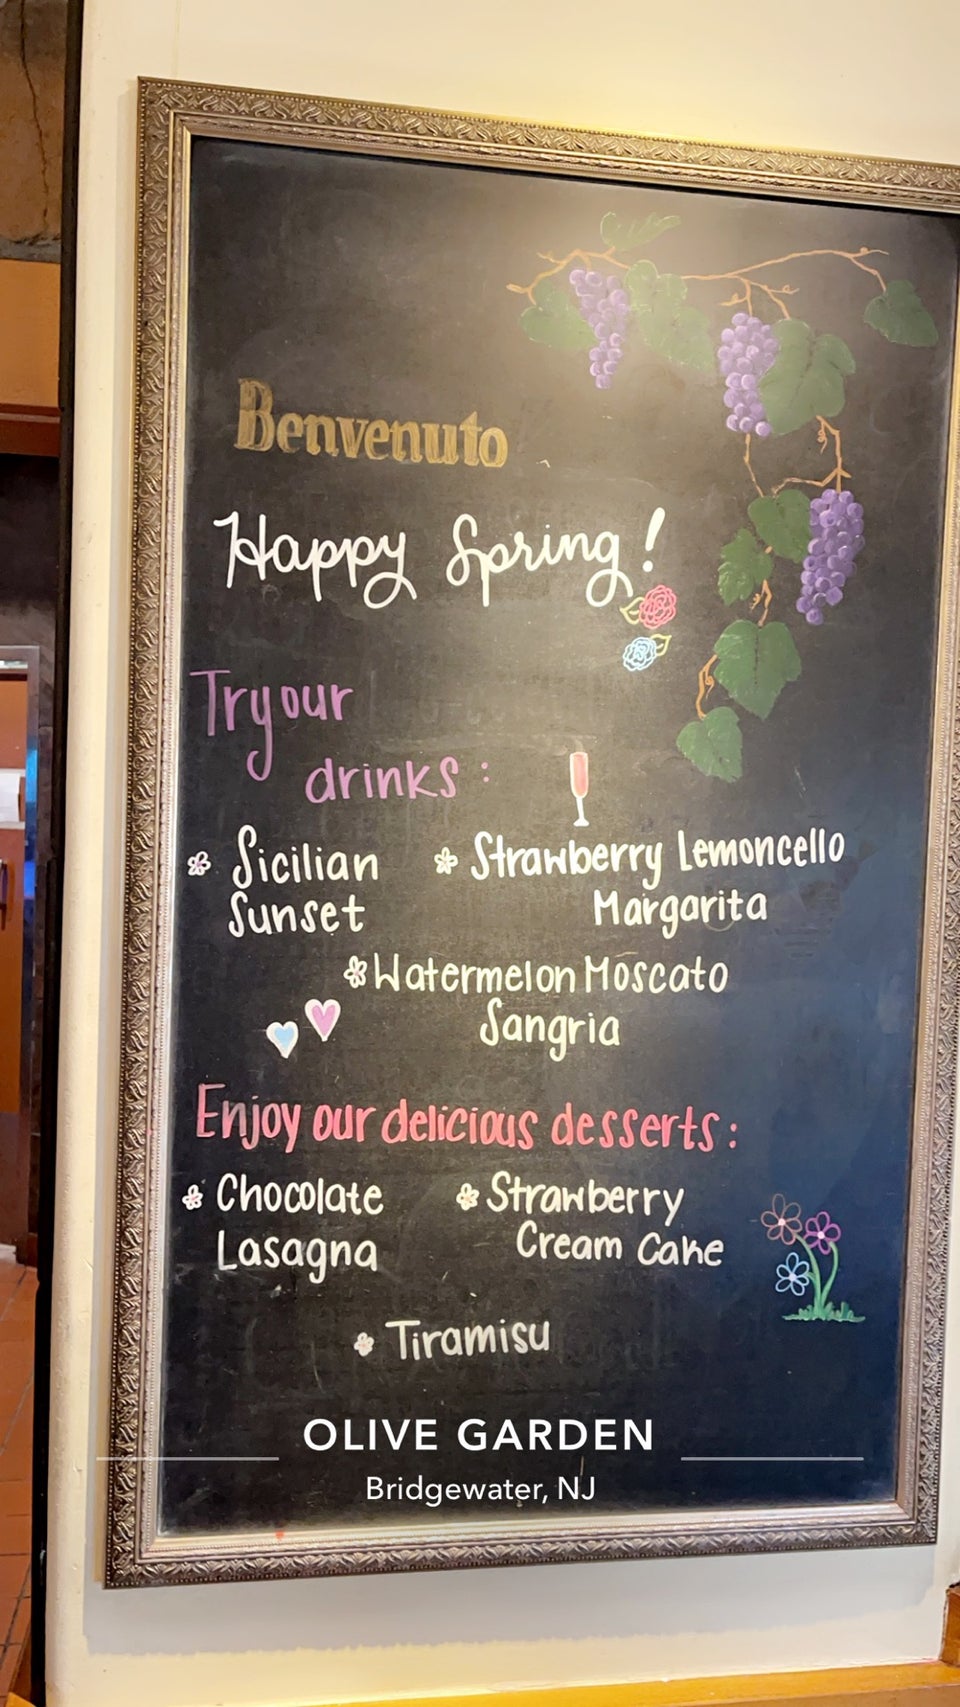 Benvenuto
Happy Spring!
Try our
drinks:
Sicilian
Sunset
Strawberry Lemoncello
Margarita
Watermelon Moscato
Sangria
Enjoy our delicious desserts:
Chocolate
Lasagna
Strawberry
Cream Cake
Tiramisu
OLIVE GARDEN
Bridgewater, NJ